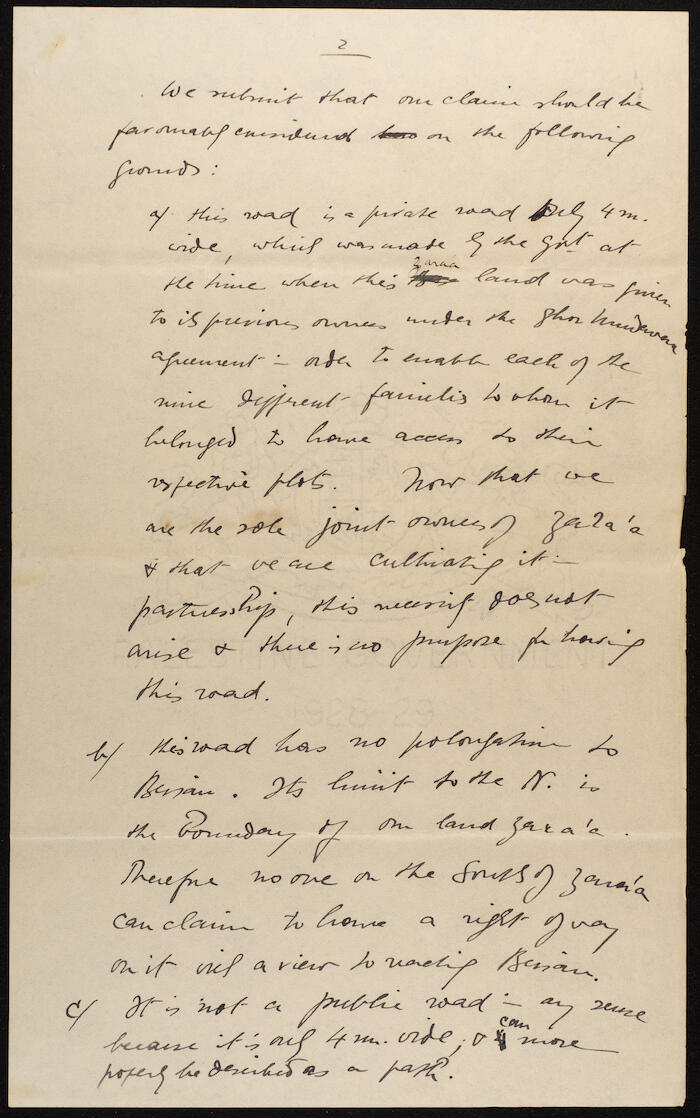 2
We submit that our claim should be
favourably considered on the following
grounds:
a/ this road is a private road only 4 m.
wide, which was made by the Govt. at
the time when this Zaraa land was given
to its previous owners under the Ghor Mudawara
agreement in order to enable each of the
nine different families to whom it
belonged to have access to their
respective plots. Now that we
are the sole joint owners of Zara'a
& that we are cultivating it in
partnership, this necessity does not
arise & there is no purpose for having
this road.
PALESTINE GOVERNMENT
1928-29
b/ this road has no prolongation to
Beisan. Its limit to the N. is
the Boundary of our land Zara'a.
Therefore no one on the South of Zara'a
can claim to have a right of way
on it with a view to reaching Beisan.
c/ It is not a public road in any sense
because it is only 4 m. wide, & can more
properly be described as a path.